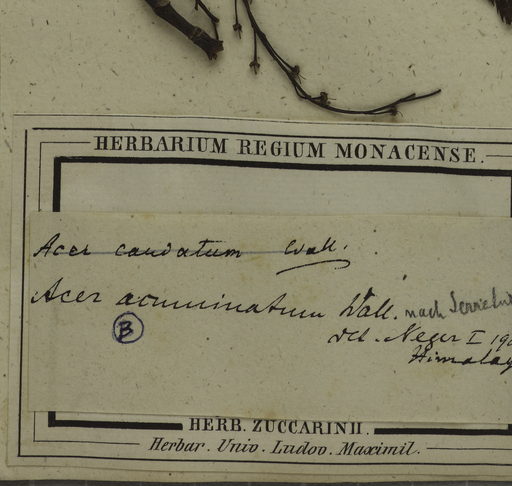 HERBARIUM REGIUM MONACENSE.
Acer caudatum Wall.
Acer acuminatum Wall. nach
B
det. Neger I 190
Himalay
HERB. ZUCCARINII.
Herbar. Univ. Ludov. Maximil.